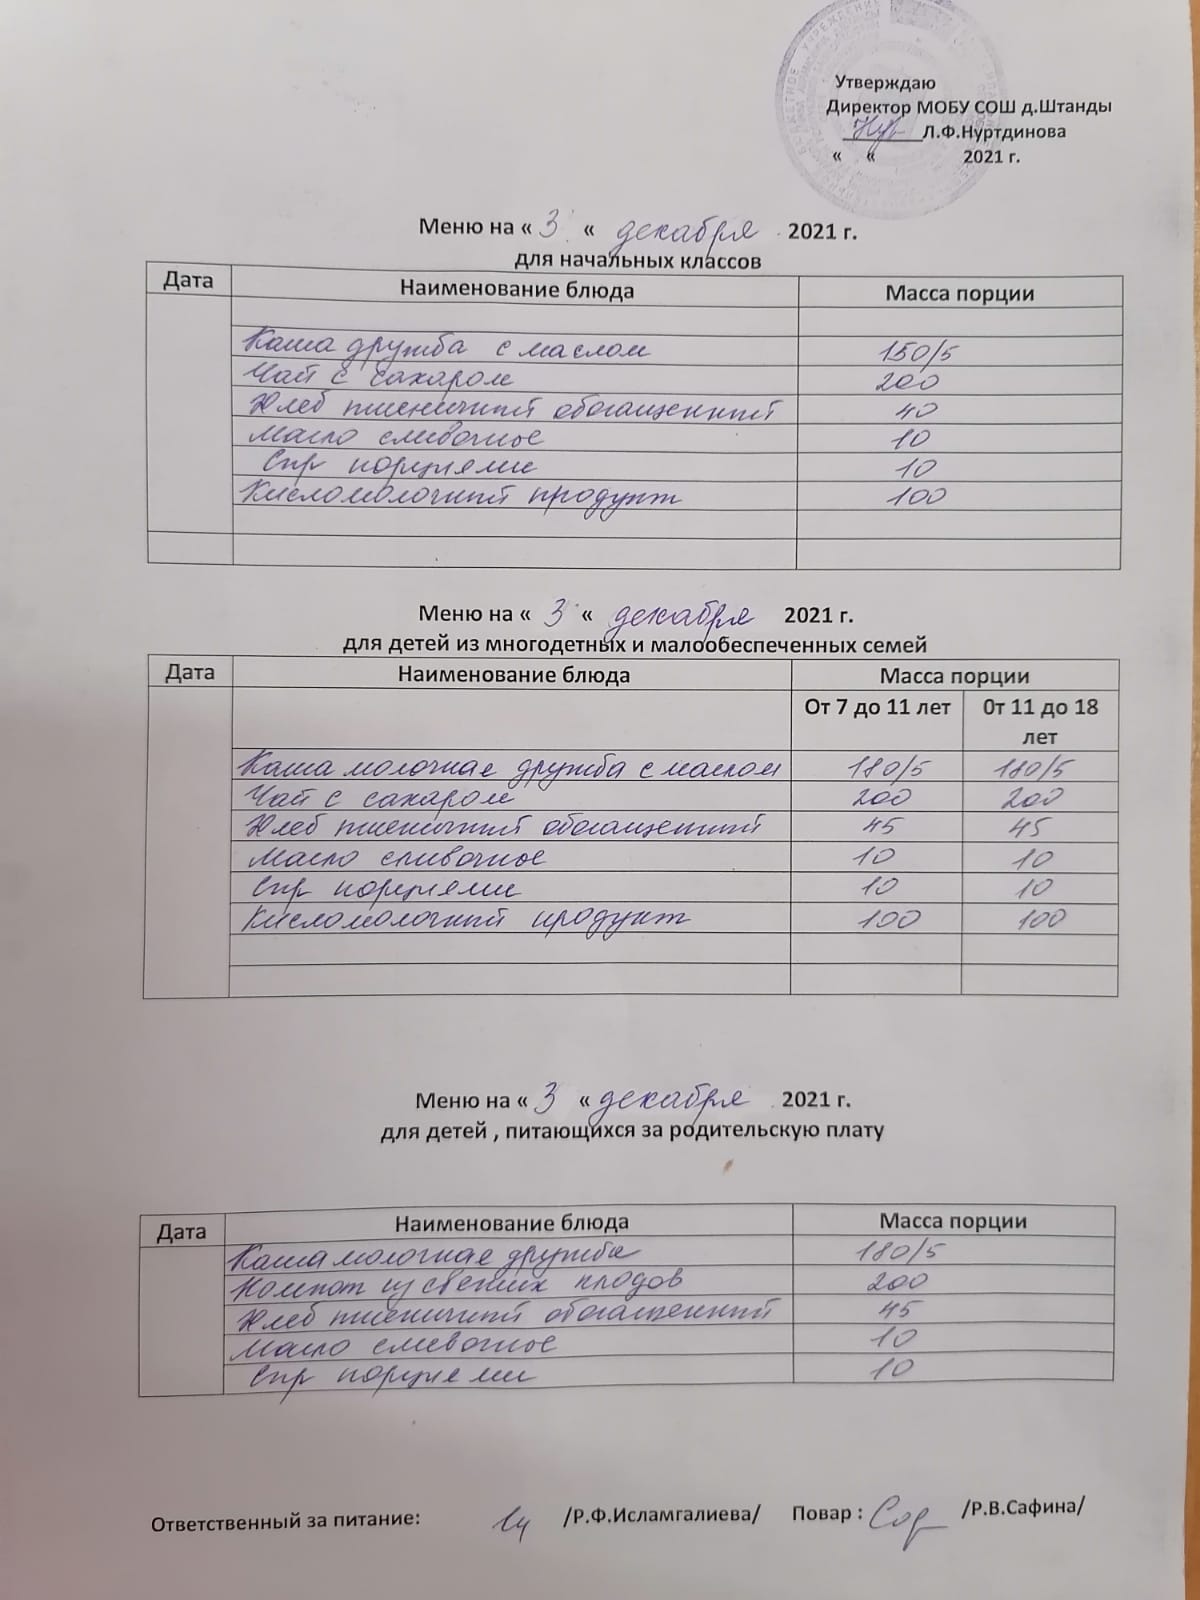 Утверждаю
Директор МОБУ СОШ д.Штанды
Л.Ф.Нуртдинова
« « 2021 г.
Меню на « 3 « декабря 2021 г.
для начальных классов
Дата Наименование блюда Масса порции
Каша дружба с маслом 150/5
Чай с сахаром 200
Хлеб пшеничный обогащенный 40
Масло сливочное 10
Сыр порциями 10
Кисломолочный продукт 100
Меню на « 3 « декабря 2021 г.
для детей из многодетных и малообеспеченных семей
Дата Наименование блюда Масса порции
От 7 до 11 лет 0т 11 до 18
лет
Каша молочная дружба с маслом 180/5 180/5
Чай с сахаром 200 200
Хлеб пшеничный обогащенный 45 45
Масло сливочное 10 10
Сыр порциями 10 10
Кисломолочный продукт 100 100
Меню на « 3 « декабря 2021 г.
для детей , питающихся за родительскую плату
Дата Наименование блюда Масса порции
Каша молочная дружба 180/5
Компот из свежих плодов 200
Хлеб пшеничный обогащенный 45
Масло сливочное 10
Сыр порциями 10
Ответственный за питание: /Р.Ф.Исламгалиева/ Повар : /Р.В.Сафина/